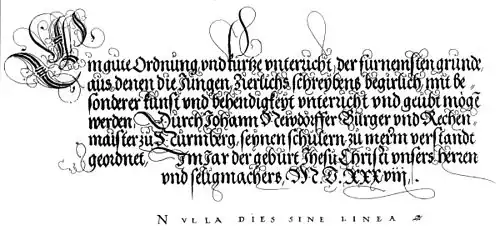 Ein gute Ordnung, und kurtze unterricht, der furnemsten grunde,
aus denen die Jungen, Zierlichs schreybens begirlich, mit be-
sonderer kunst und behendigkeyt unterricht und geubt mög̃
werden Durch Johann Newdorffer Burger und Rechen
maister zu Nurmberg, seynen schulern zu merm verstandt
geordnet. Im Jar der geburt Jhesu Christi unsers herren
und seligmachers, M. D. XXX viij.
NVLLA DIES SINE LINEA